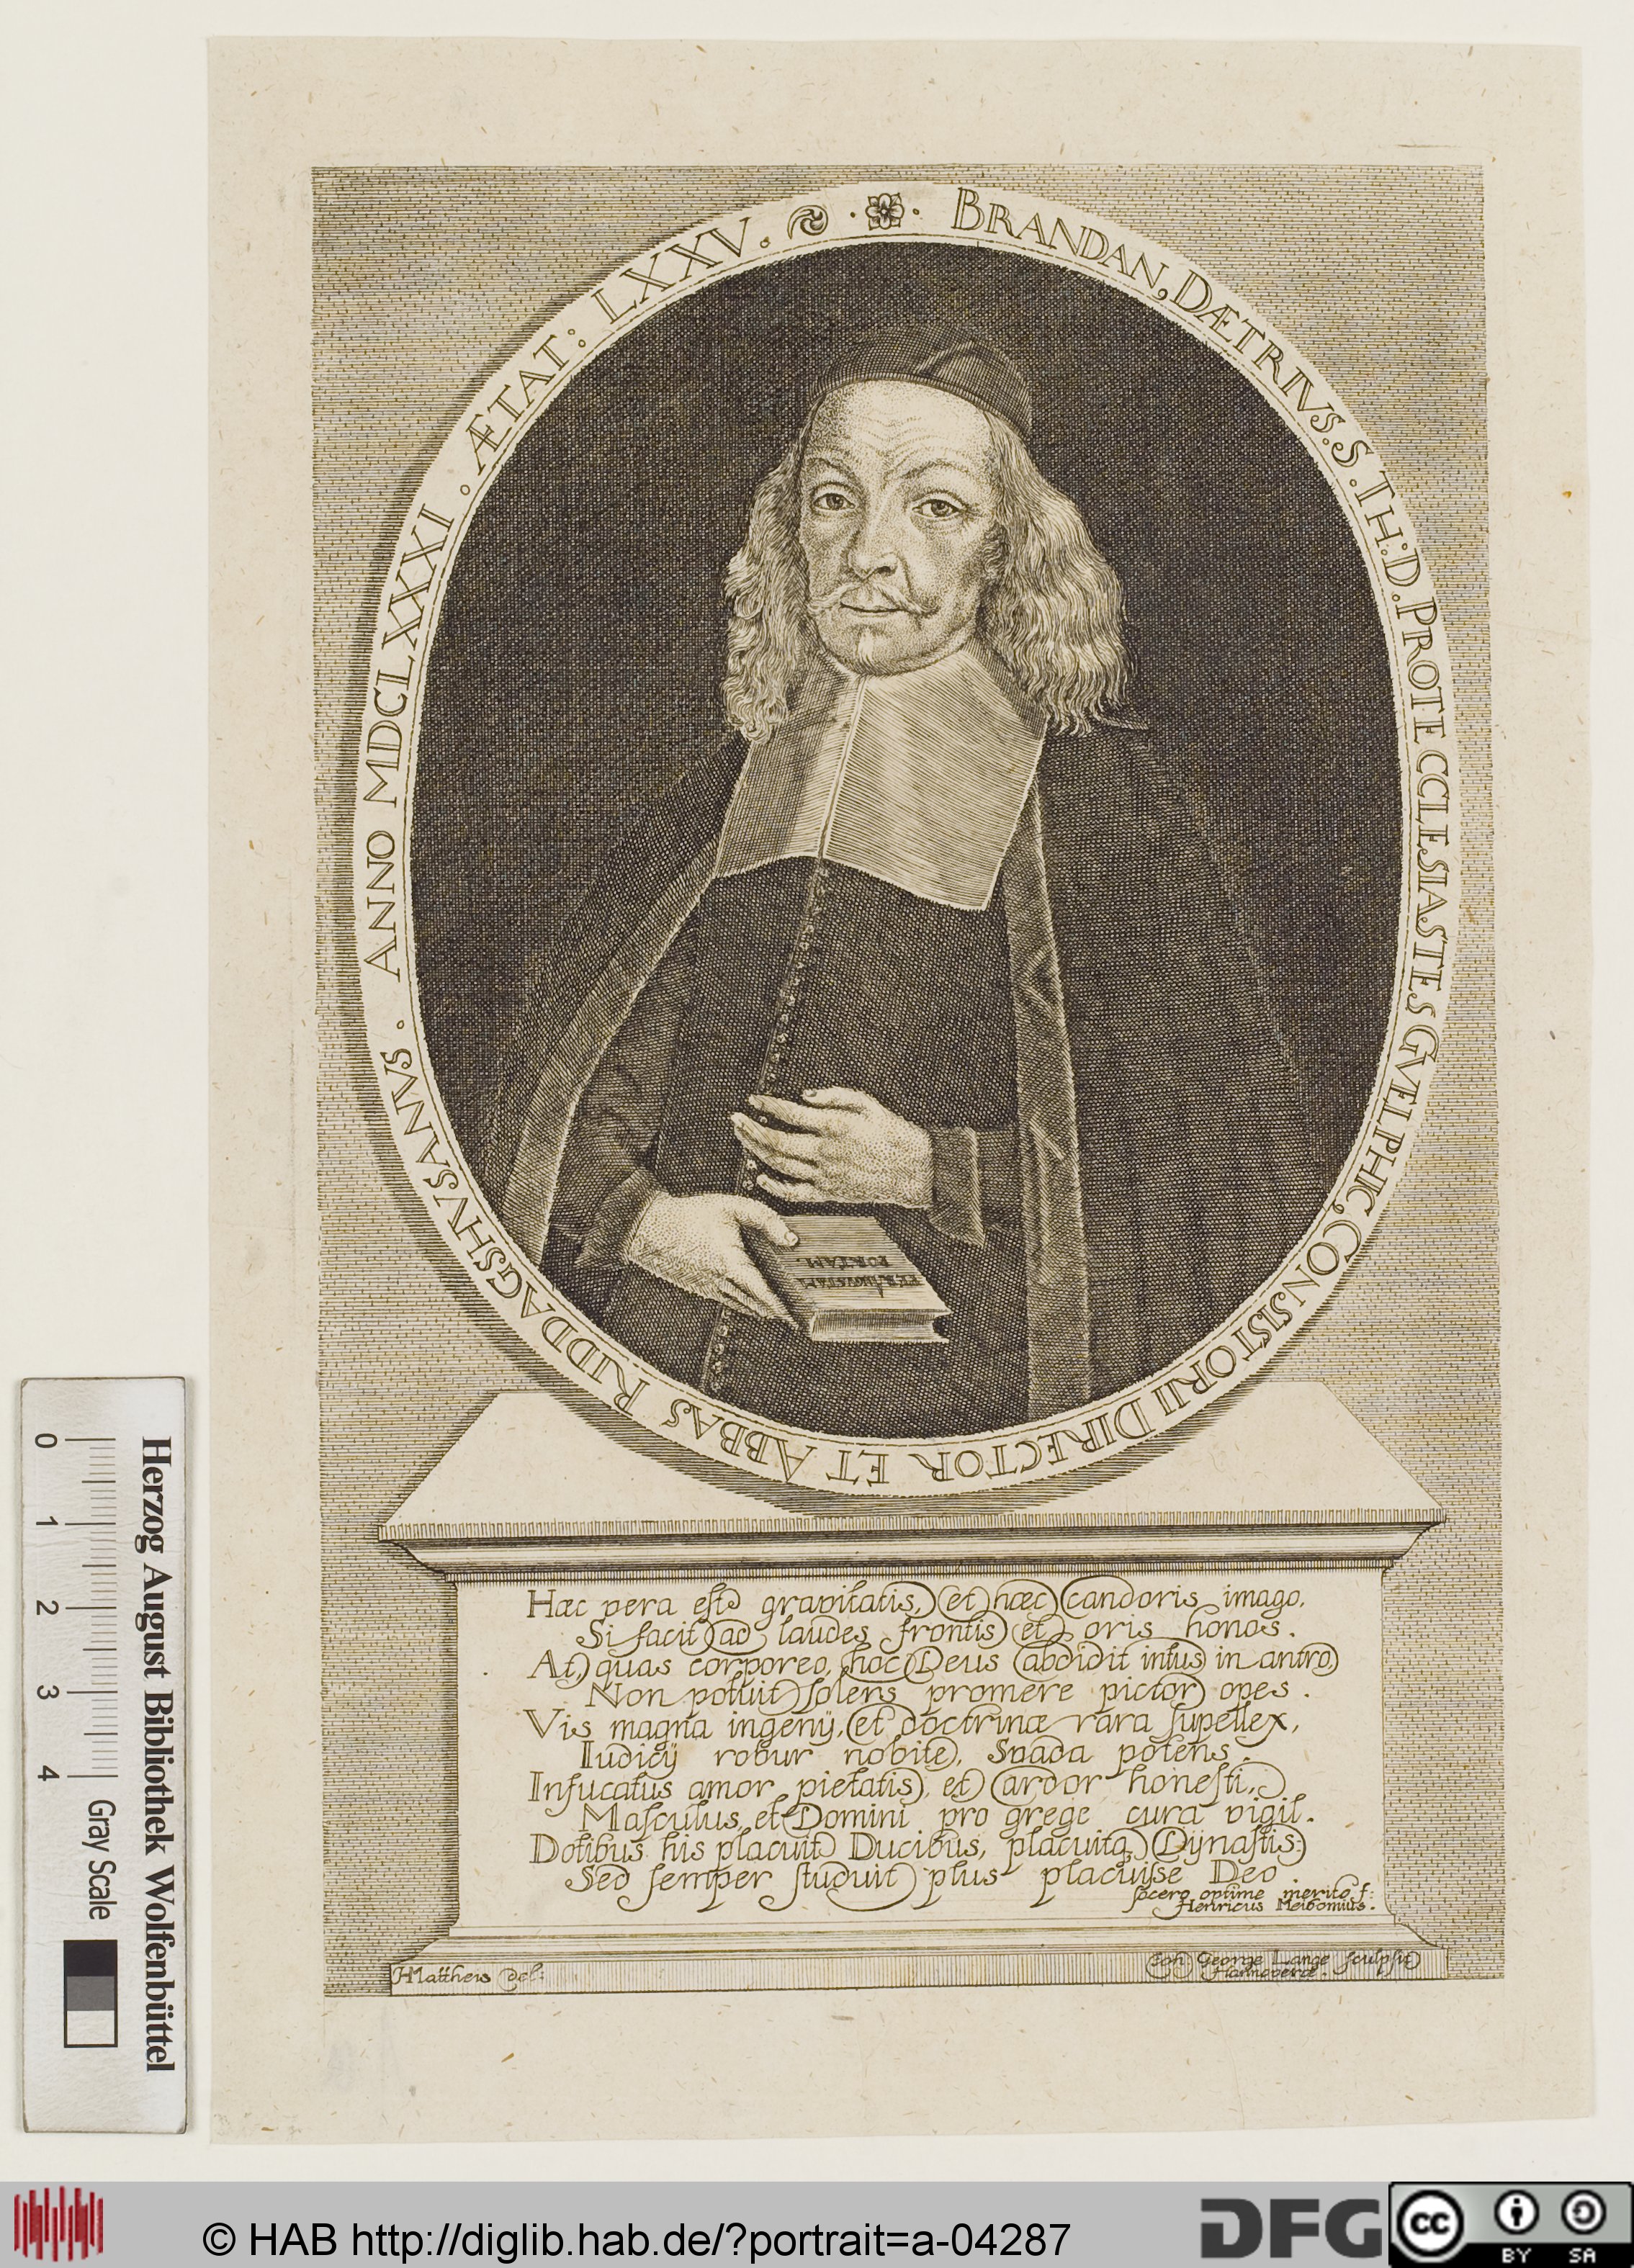 BRANDAN, DÆTRIVS. S. TH: D. PROTECCLESIASTES GVELPHIC, CONSISTORII DIRECTOR ET ABBAS RIDDAGSHVSANVS. ANNO MDCLXXXI. ÆTAT: LXXV.
PER ANGVSTAM
PORTAM.
Hæc vera est gravitatis, et hæc Candoris imago,
Si facit ad laudes frontis et oris honos.
At, quas corporeo hoc Deus abdidit intus in antro,
Non potuit solens promere pictor opes.
Vis magna ingenij, et doctrinæ rara supellex,
Iudicij robur nobile, Svada potens.
Infucatus amor pietatis, et ardor honesti,
Masculus, et Domini pro grege cura vigil.
Dotibus his placuit Ducibus, placuitq, Dÿnastis:
Sed semper studuit plus placuisse Deo.
socero optime merito f:
Henricus Meibomius.
HMattheis del:
Joh George Lange sculpsit
Hannoveræ.
Herzog August Bibliothek Wolfenbüttel
0 1 2 3 4 Gray Scale
© HAB http://diglib.hab.de/?portrait=a-04287
DFG
cc BY SA